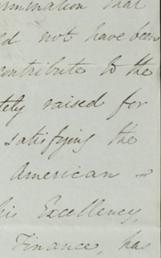 mmination that
ed not have been
contribute to the
tely raised for
satisfying the
American
his Excellency,
Finance, has